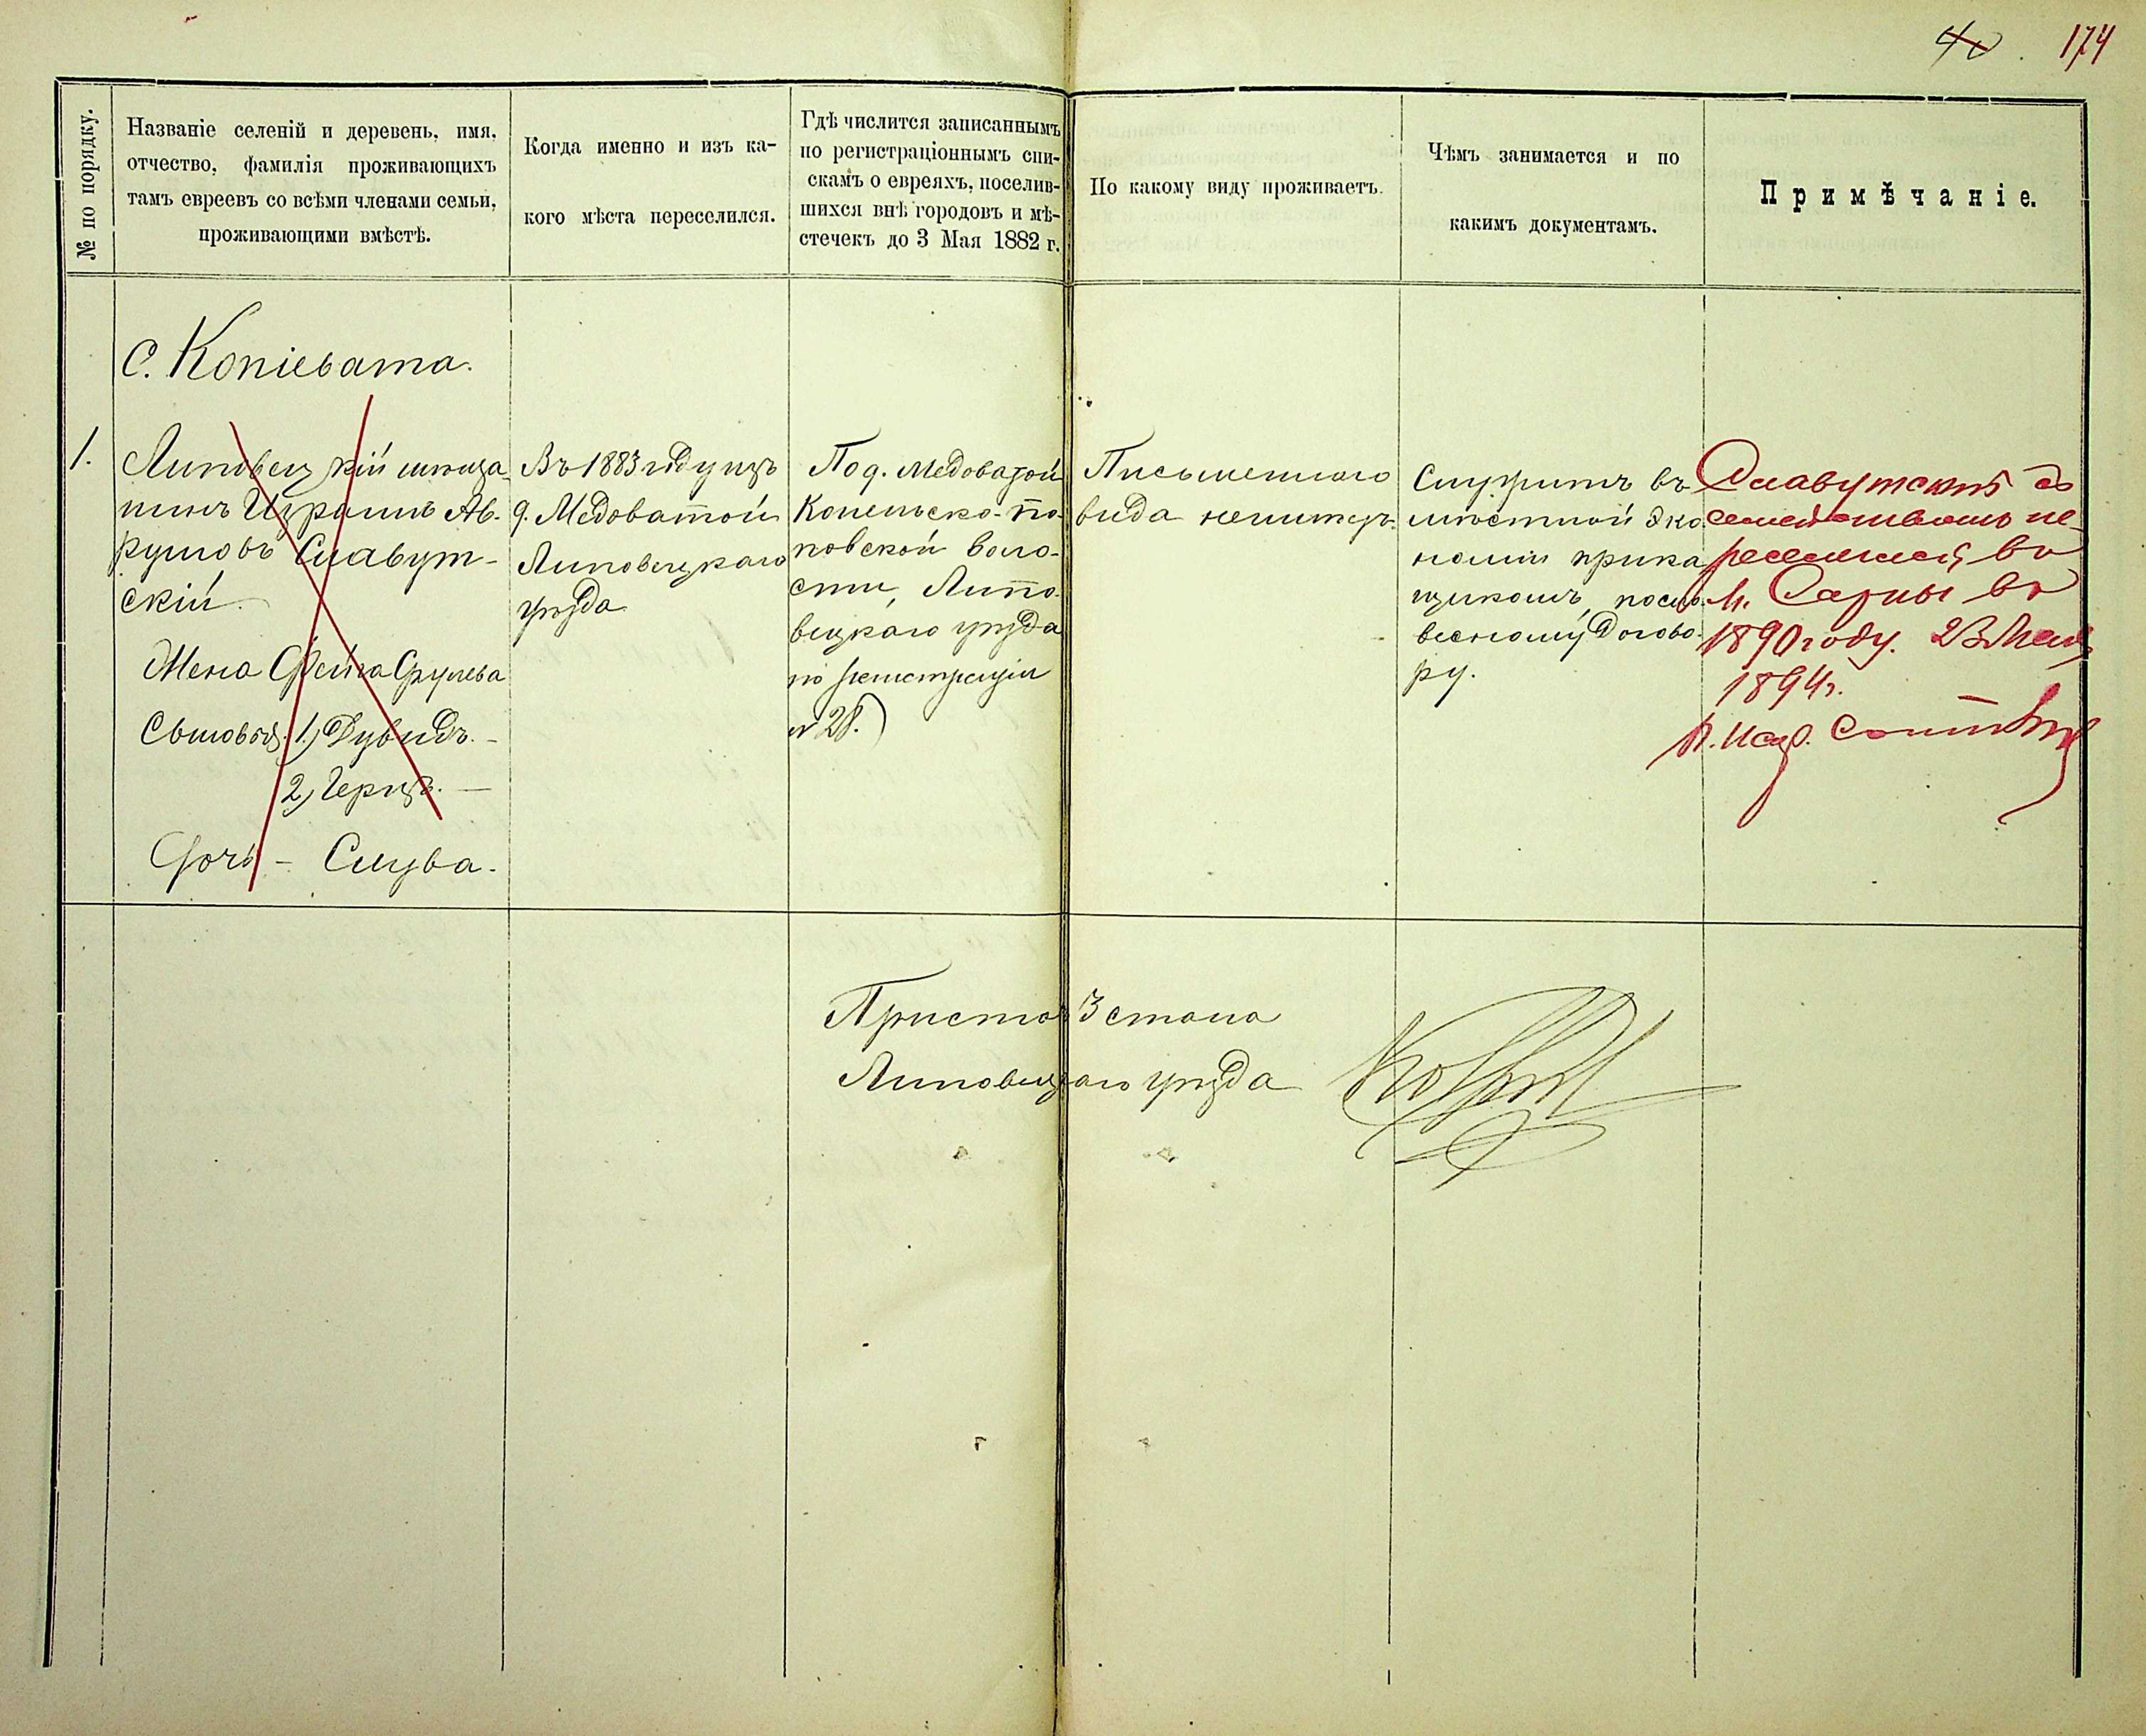 40. 174
№ по порядку.
Названіе селеній и деревень, имя,
отчество, фамилія проживающихъ
тамъ евреевъ со всѣми членами семьи,
проживающими вмѣстѣ.
Когда именно и изъ ка-
кого мѣста переселился.
Гдѣ числится записаннымъ
по регистраціоннымъ спи-
скамъ о евреяхъ, поселив-
шихся внѣ городовъ и мѣ-
стечекъ до 3 Мая 1882 г.
По какому виду проживаетъ.
Чѣмъ занимается и по
какимъ документамъ.
Примѣчаніе.
С. Копіевата.
1.
Липовецкій мѣща-
нинъ Израиль Ав-
румовъ Славут-
скій.
Жена Фейга Срулева
Сыновья: 1) Дувидъ. -
2) Герцъ. -
Дочь - Слува.
Въ 1883 году изъ
д. Медоватой
Липовецкаго
уѣзда
По д. Медоватой
Конельско-По-
повской воло-
сти, Липо-
вецкаго уѣзда
по регистраціи
№ 28.)
Письменнаго
вида неимѣетъ.
Служитъ въ
мѣстной эко-
номіи прика
щикомъ, посло-
весному догово-
ру.
Славутскій съ
семействомъ пе-
реселился въ
м. Сарны въ
1890 году. 23 Мая
1894 г.
Приставъ 3 стана
Липовецкаго уѣзда